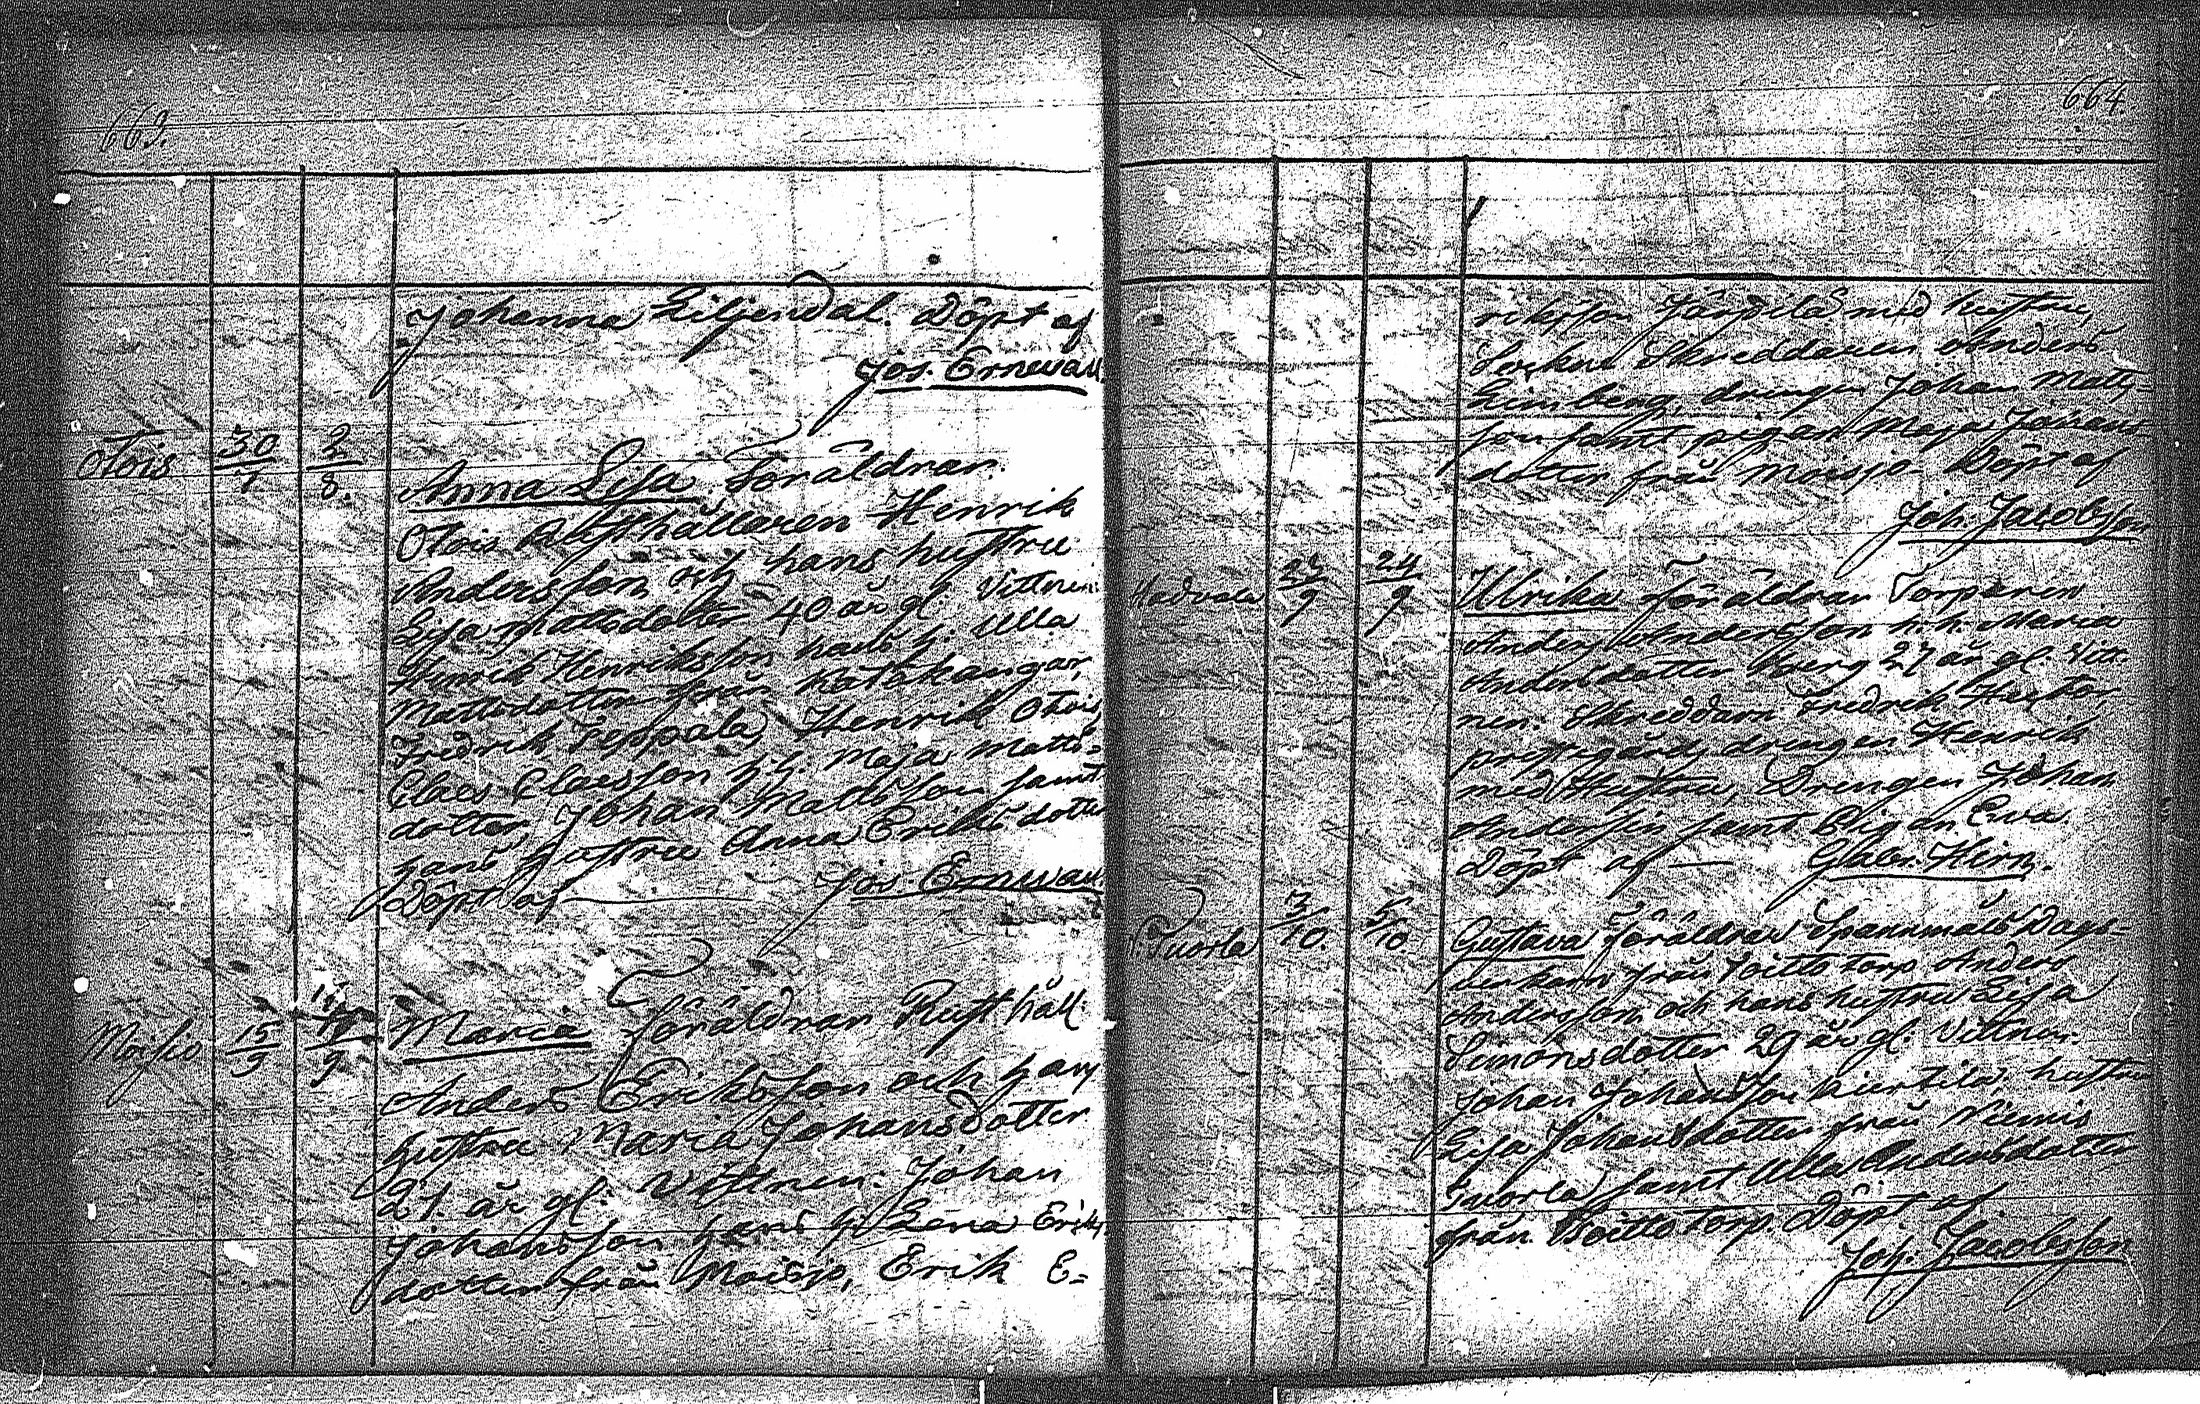 663.
Johanna Liljendal. Döpt af
Jos. Ernewall
Otois 30/7 2/8. Anna Lisa Föräldrar.
Otois Rusthållaren Henrik
Andersson och hans hustru
Lisa Mattsdotter 40 år gl. Vittnen:
Henrik Henriksson hans h. Ulla
Mattsdotter från Katakangar,
Fredrik Seppälä, Henrik Otois
Claes Claesson h. h. Maja Matts=
dotter, Johan Mattsson samt
hans hustru Anna Eriksdotter
Döpt af Jos. Ernewall
Moisio 15/9 /9 Maria Föräldrar Rusthåll.
Anders Eriksson och hans
hustru Maria Johansdotter
21. år gl. Vittnen: Johan
Johansson hans h. Lena Eriks
dotter från Moisio, Erik E=
664.
riksson med hustru,
Sockne Skreddaren Anders
Limberg, drengen Johan Matts=
son samt pigan Maja Johans
dotter från Moisio Döpt af
Joh. Jacobsson
/9 24/9 Ulrika Föräldrar Torparen
Anders Andersson h. h. Maria
Andersdotter 27 år gl. Vitt-
nen. Skreddarn Fredrik
prestgårds drengen Henrik
med Hustru, Drengen Johan
Andersson samt Pigan Ewa
Döpt af Gabr. Hirn.
N. Tuorla 3/10. 5/10 Gustava Föräldrar Spanmåls Dags-
verkarn från Voitto torp Anders
Andersson och hans hustru Lisa
Simonsdotter 29 år gl. Vittnen.
Johan Johansson hustru
Lisa Johansdotter från Niemis
Tuorla samt Ulla Andersdotter
från Voitto torp. Döpt af
Joh. Jacobsson